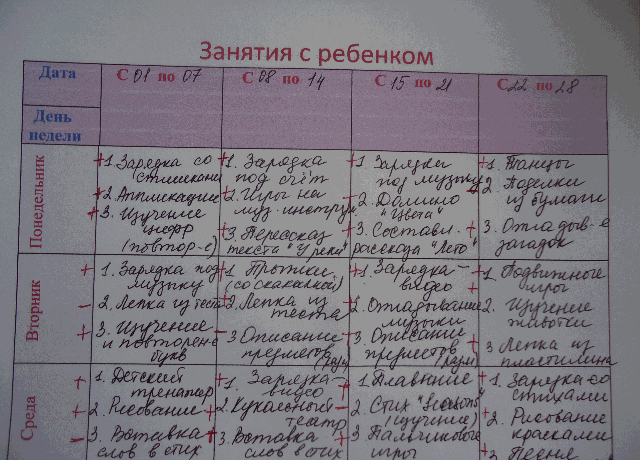 Занятия с ребенком
Дата
С 01 по 07
С 08 по 14
С 15 по 21
С 22 по 28
День
недели
Понедельник
+ 1. Зарядка со
стишками
+ 2. Аппликация
+ 3. Изучение
цифр
(повтор-е)
+ 1. Зарядка
под счёт
- 2. Игры на
муз. инструм.
+ 3. Пересказ
текста "У реки"
+ 1. Зарядка
под музыку
- 2. Домино
"Цвета"
+ 3. Составл.
рассказа "Лето"
+ 1. Танцы
2. Поделки
из бумаги
3. Отгадыв-е
загадок
Вторник
+ 1. Зарядка под
музыку
- 2. Лепка из теста
+ 3. Изучение
и повторение
букв
+ 1. Прыжки
(со скакалкой)
+ 2. Лепка из
теста
- 3. Описание
предметов
+ 1. Зарядка-
видео
+ 2. Отгадывание
музыки
+ 3. Описание
предметов
+ 1. Подвижные
игры
2. Изучение
3. Лепка из
пластилина
Среда
+ 1. Детский
тренажер
+ 2. Рисование
- 3. Вставка
слов в стих
+ 1. Зарядка-
видео
+ 2. Кукольный
театр
+ 3. Вставка
слов в стих
+ 1. Плавание
- 2. Стих
(изучение)
+ 3. Пальчиковые
игры
+ 1. Зарядка со
стихами
+ 2. Рисование
красками
3. Песня